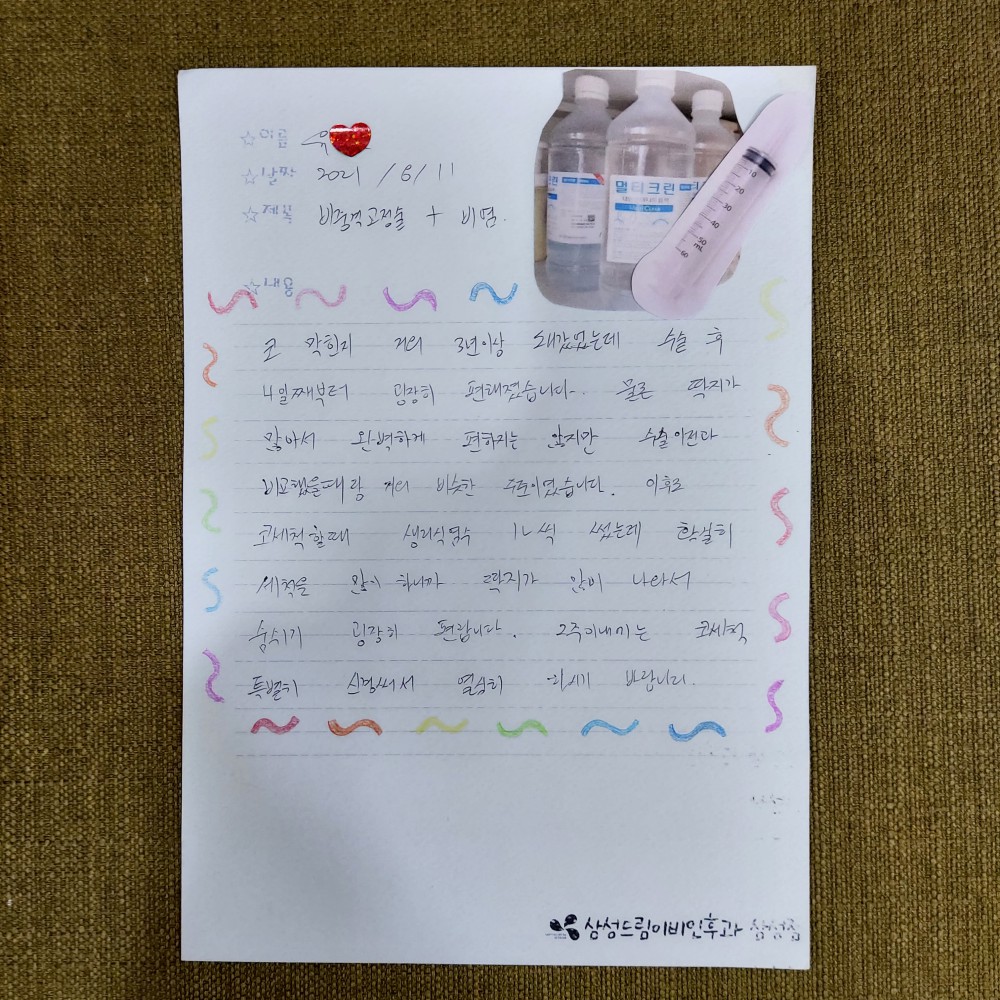 ☆이름 유
☆날짜 2021 / 6 / 11
☆제목 비중격교정술 + 비염.
☆내용
멀티크린
MultiClean
10
20
30
40
50
mL
60
코 막힌지 거의 3년이상 돼갔었는데 수술 후
4일째부터 굉장히 편해졌습니다. 물론 딱지가
많아서 완벽하게 편하지는 않지만 수술이전과
비교했을때랑 거의 비슷한 수준이였습니다. 이후로
코세척할때 생리식염수 1L씩 썼는데 확실히
세척을 많이 하니까 딱지가 많이 나와서
숨쉬기 굉장히 편합니다. 2주이내에는 코세척
특별히 신경써서 열심히 하시기 바랍니다.
삼성드림이비인후과 삼성점